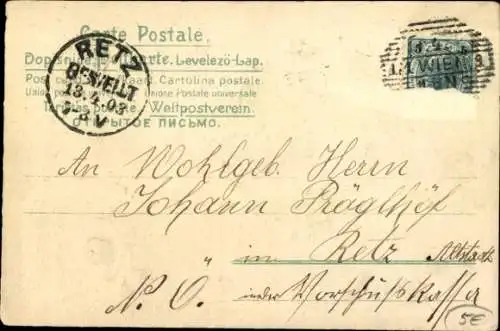 Carte Postale.
Levelező-Lap.
Cartolina postale.
Union Postale universelle
Weltpostverein.
ОТКРЫТОЕ ПИСЬМО.
RETZ
BESTELLT
13.4.03
WIEN
An Wohlgeb. Herrn
Johann
" in Retz Altstadt
N. Ö. in der Vorschußkassa
5E